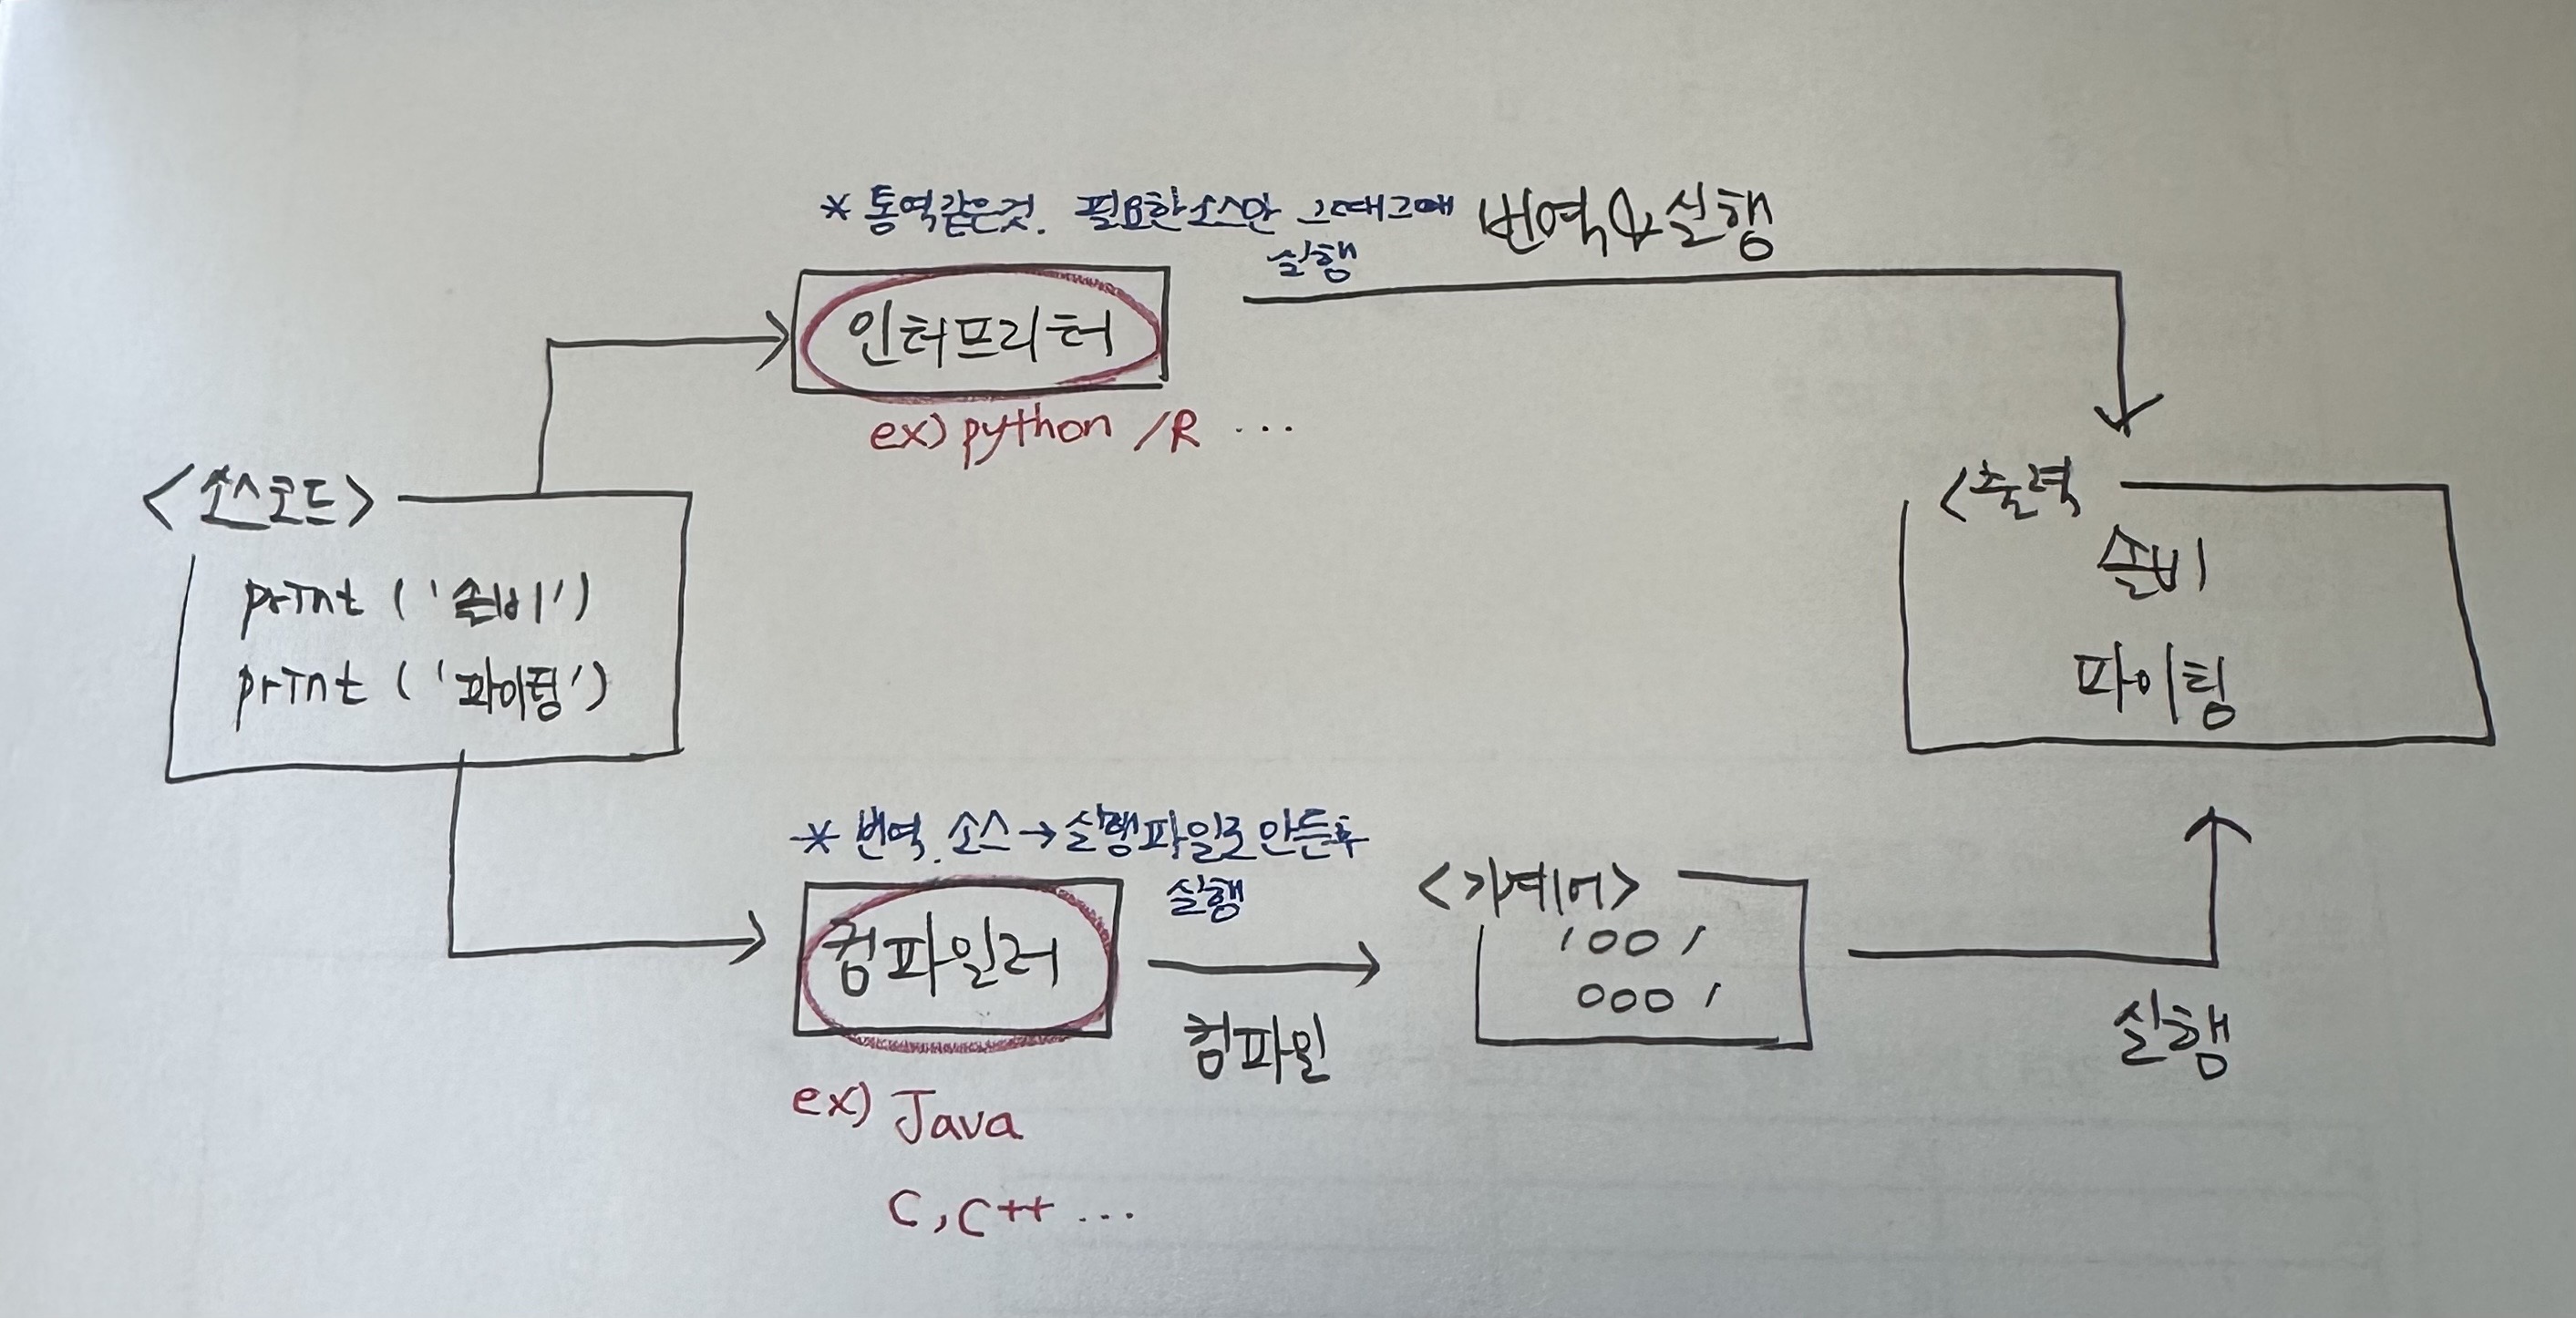 * 통역같은것. 필요한소스만 그때그때 번역&실행
실행
인터프리터
ex) python /R ...
<소스코드>
print ('준비')
print ('파이팅')
<출력
준비
파이팅
* 번역. 소스→실행파일로 만든후
실행
컴파일러
컴파일
<기계어>
1001
0001
실행
ex) Java
C, C++ ...